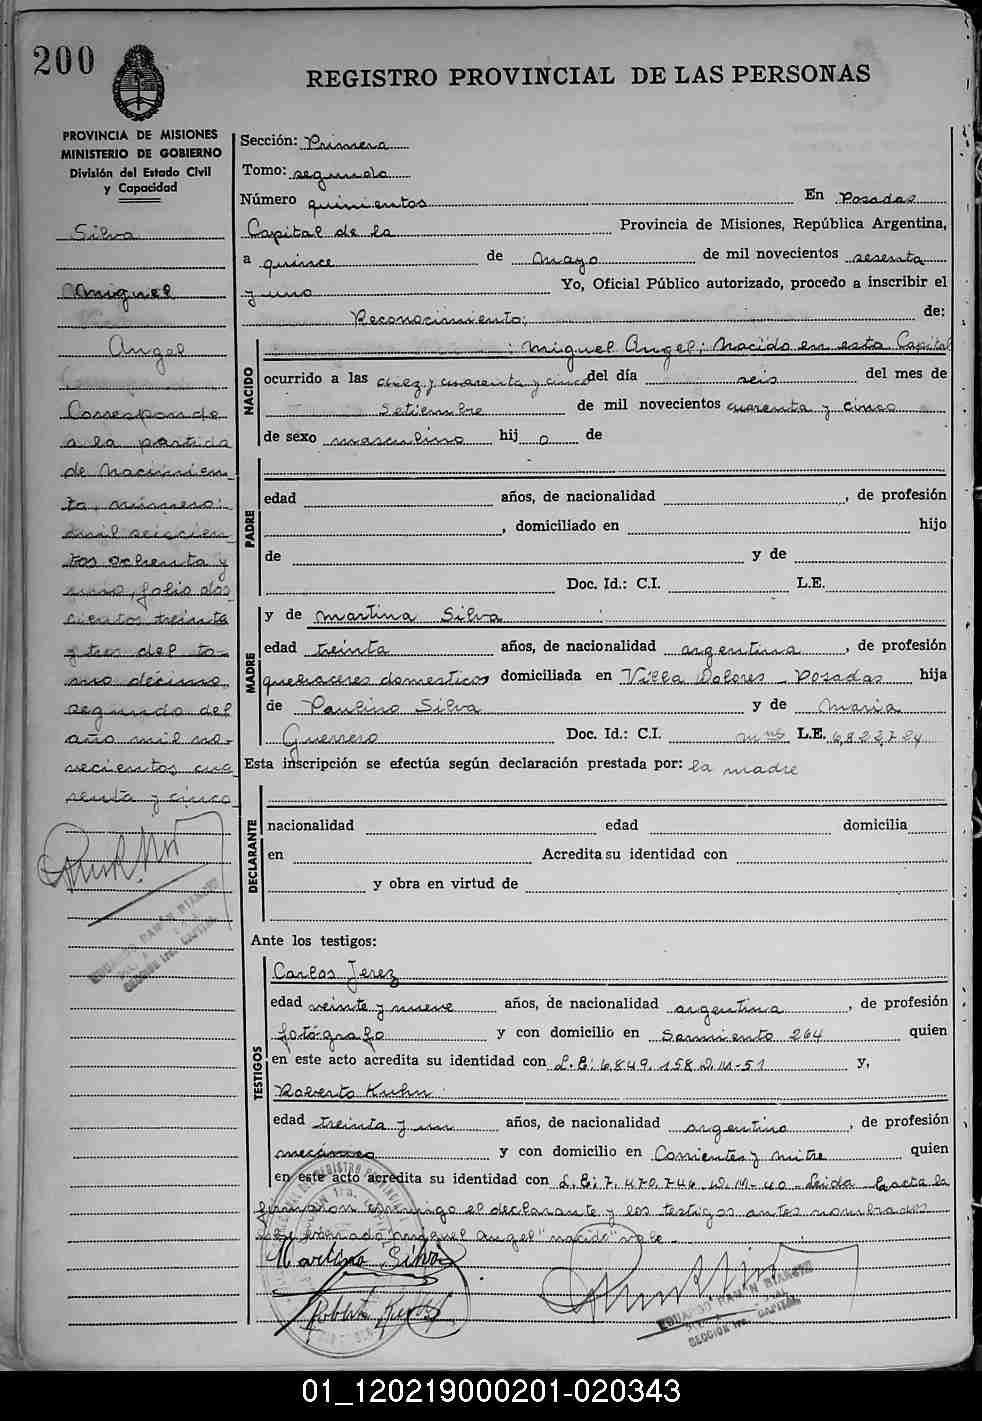 200
REGISTRO PROVINCIAL DE LAS PERSONAS
PROVINCIA DE MISIONES
MINISTERIO DE GOBIERNO
División del Estado Civil
y Capacidad
Silva
Miguel
Angel
Corresponde
a la partida
de nacimien
to, número:
mil seiscien
tos ochenta y
uno, folio dos
cientos treinta
y tres del to-
mo décimo
segundo del
año mil no-
vecientos cua
renta y cinco
Sección: Primera
Tomo: segundo
Número quinientos En Posadas
Capital de la Provincia de Misiones, República Argentina,
a quince de Mayo de mil novecientos sesenta
y uno Yo, Oficial Público autorizado, procedo a inscribir el
Reconocimiento; de:
NACIDO
: Miguel Angel; Nacido en esta Capital
ocurrido a las diez y cuarenta y cinco del día seis del mes de
Setiembre de mil novecientos cuarenta y cinco
de sexo masculino hij o de
PADRE
edad años, de nacionalidad , de profesión
, domiciliado en hijo
de y de
Doc. Id.: C.I. L.E.
MADRE
y de Martina Silva
edad treinta años, de nacionalidad argentina , de profesión
quehaceres domesticos domiciliada en Villa Dolores - Posadas hija
de Paulino Silva y de Maria
Guerrero Doc. Id.: C.I. Mns L.E. 6,822,724
Esta inscripción se efectúa según declaración prestada por: la madre
DECLARANTE
nacionalidad edad domicilia
en Acredita su identidad con
y obra en virtud de
Ante los testigos:
TESTIGOS
Carlos Jerez
edad veinte y nueve años, de nacionalidad argentina , de profesión
fotógrafo y con domicilio en Sarmiento 264 quien
en este acto acredita su identidad con L.E: 6,849,158 D.M-51 y,
Roberto Kuhn
edad treinta y un años, de nacionalidad argentino , de profesión
mecánico y con domicilio en Corrientes y Mitre quien
en este acto acredita su identidad con L.E: 7.470.746 D.M-40 - Leida el acta la
firmaron conmigo el declarante y los testigos antes nombrados
"Miguel Angel" "nacido" vale -
Martina Silva
EDUARDO RAMÓN BIANCHI
SECCION 1ra. CAPITAL
EDUARDO RAMÓN BIANCHI
SECCION 1ra. CAPITAL
01_120219000201-020343